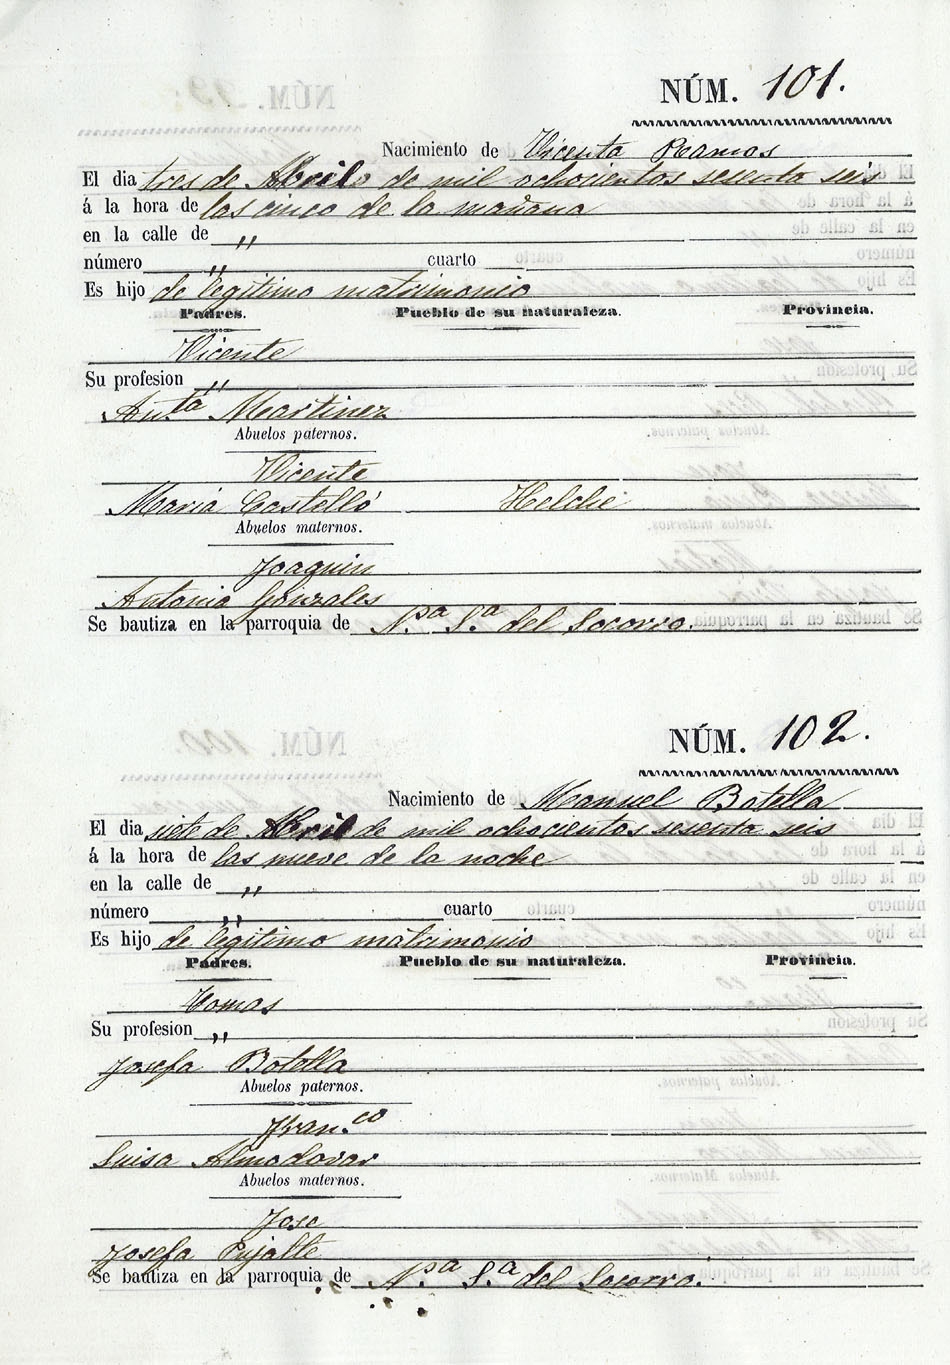 NÚM. 101.
Nacimiento de Vicenta Ramos
El dia tres de Abril de mil ochocientos sesenta seis
á la hora de las cinco de la mañana
en la calle de "
número " cuarto
Es hijo de legitimo matrimonio
Padres. Pueblo de su naturaleza. Provincia.
Vicente
Su profesion "
Antᵃ Martinez
Abuelos paternos.
Vicente
Maria Castelló Helche
Abuelos maternos.
Joaquin
Antonia Gonzales
Se bautiza en la parroquia de N.ª S.ª del Socorro.
NÚM. 102.
Nacimiento de Manuel Botella
El dia siete de Abril de mil ochocientos sesenta seis
á la hora de las nueve de la noche
en la calle de "
número " cuarto
Es hijo de legitimo matrimonio
Padres. Pueblo de su naturaleza. Provincia.
Tomas
Su profesion "
Josefa Botella
Abuelos paternos.
Fran.co
Luisa Almodovar
Abuelos maternos.
Jose
Josefa Pujalte
Se bautiza en la parroquia de N.ª S.ª del Socorro.